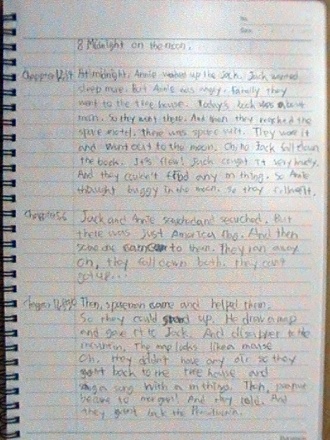 No.
Date
8 Midnight on the moon.
At midnight, Annie waked up the Jack. Jack wanted
sleep more. But Annie was angry. Finally they
went to the tree house. Today's book was about
moon. So they went there. And when they reached the
space motel, there was space suit. They wore it
and went out to the moon. Oh, no Jack fall down
the book. It's flow! Jack caught it very barely.
And they couldn't find any m thing. So Annie
thought buggy in the moon. So they
Chapter 5,6 Jack and Annie searched and searched. But
there was just America flag. And then
someone came to them. They ran away
Oh, they fall down both. They can't
get up...
Then, spaceman came and helped them.
So they could stand up. He draw a map
and gave it to Jack. And disappear to the
mountain. The map looks like a mouse
Oh, they didn't have any air so they
went back to the tree house and
sang a song with a m things. Then, peanut
became to morgan! And they told. And
they went back the